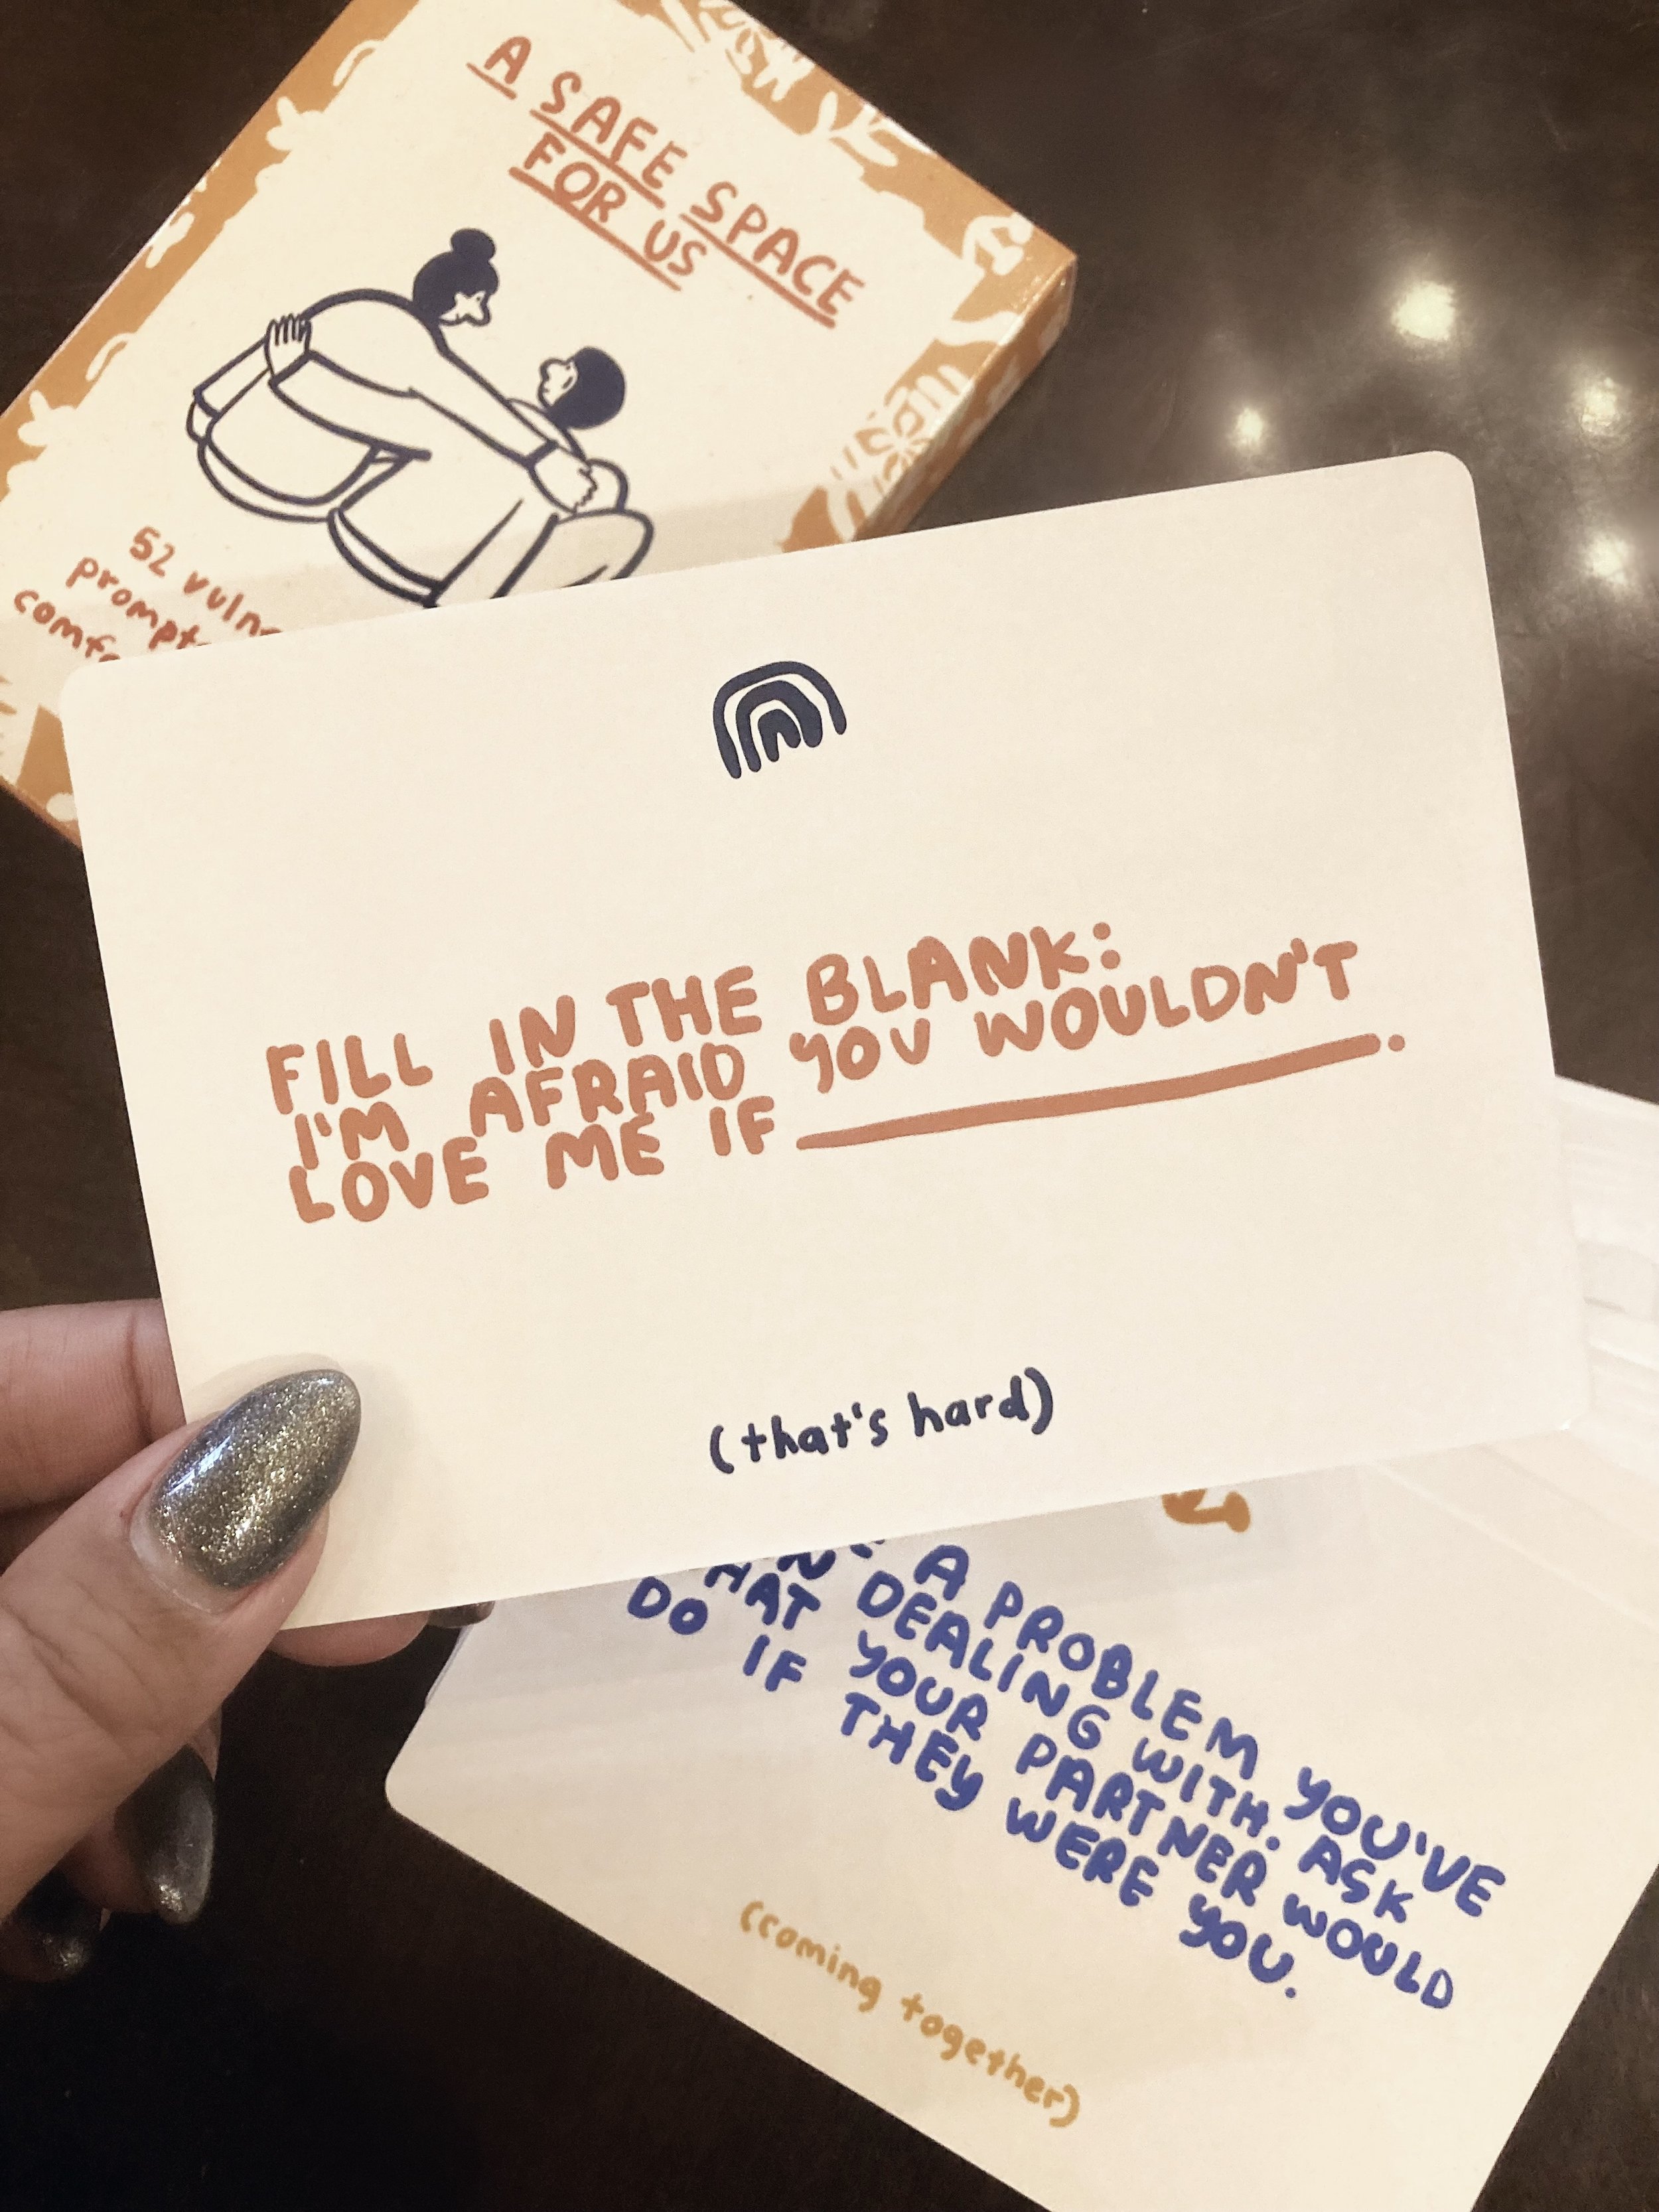 A SAFE SPACE
FOR US
52
FILL IN THE BLANK:
I'M AFRAID YOU WOULDN'T
LOVE ME IF ________.
(that's hard)
A PROBLEM YOU'VE
DEALING WITH. ASK
YOUR PARTNER WOULD
DO IF THEY WERE YOU.
(coming together)